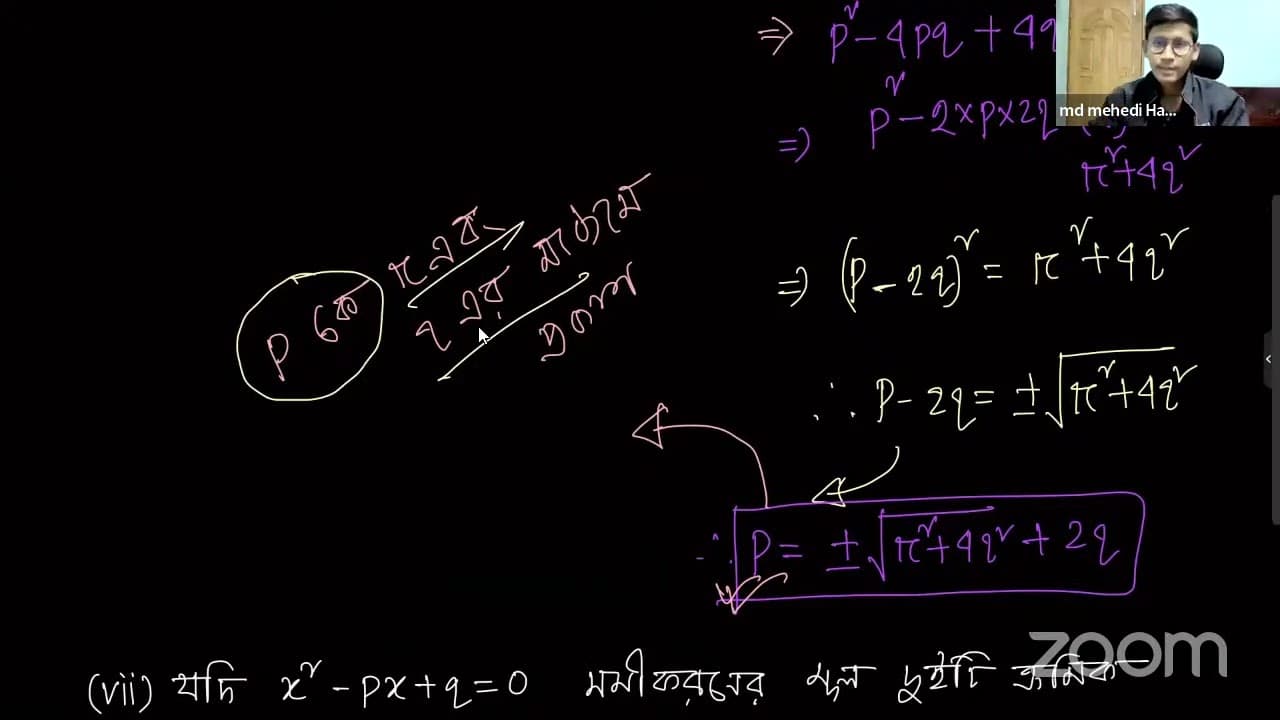 ⇒ p² - 4pq + 4q
md mehedi Ha...
⇒ p² - 2×p×2q
π² + 4q²
p কে π এবং
q এর মাধ্যমে
প্রকাশ
⇒ (p - 2q)² = π² + 4q²
∴ p - 2q = ±√π² + 4q²
∴ p = ±√π² + 4q² + 2q
zoom
(vii) যদি x² - px + q = 0 সমীকরণের মূল দুইটি ক্রমিক